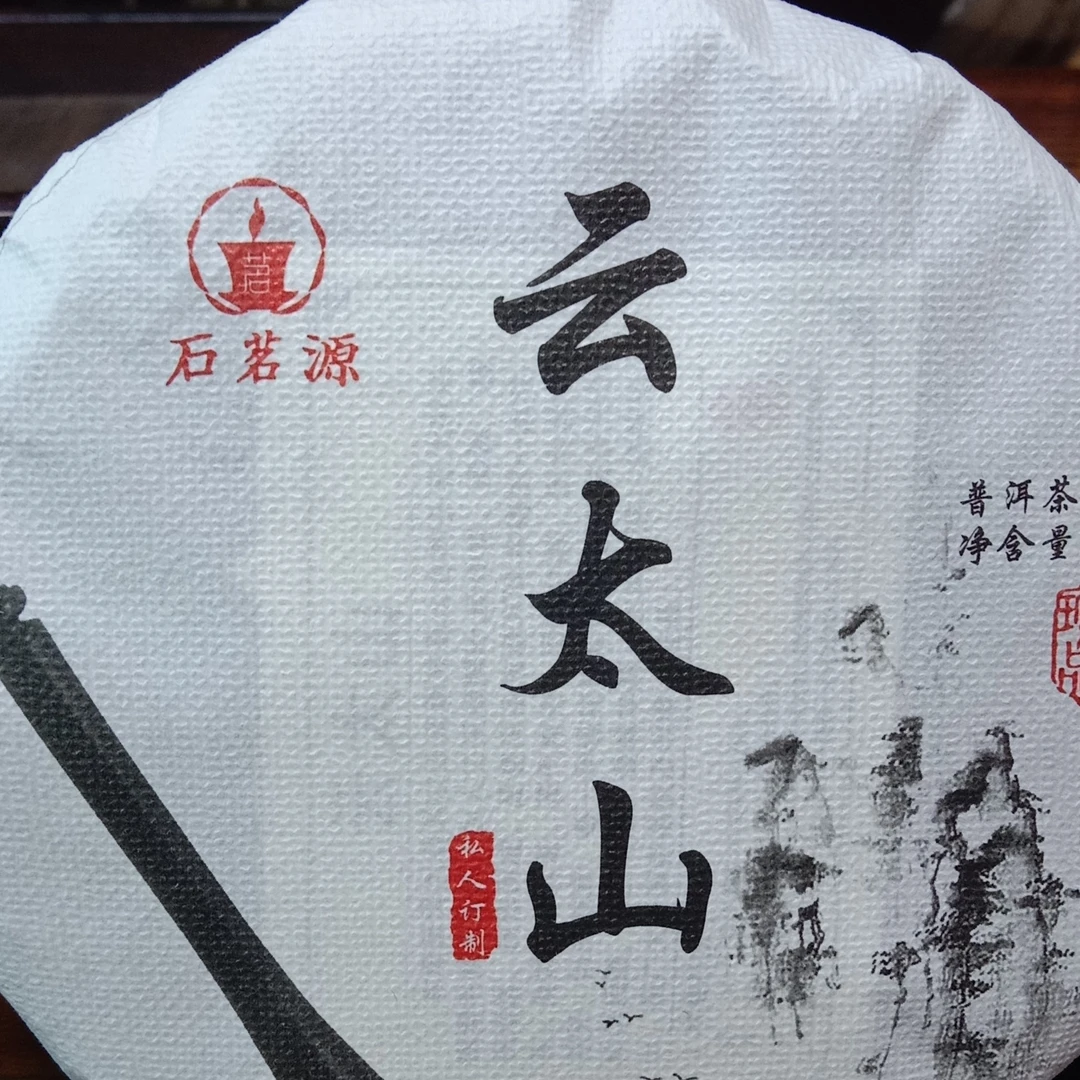 茗
石茗源
云太山
普洱茶
净含量
私人订制